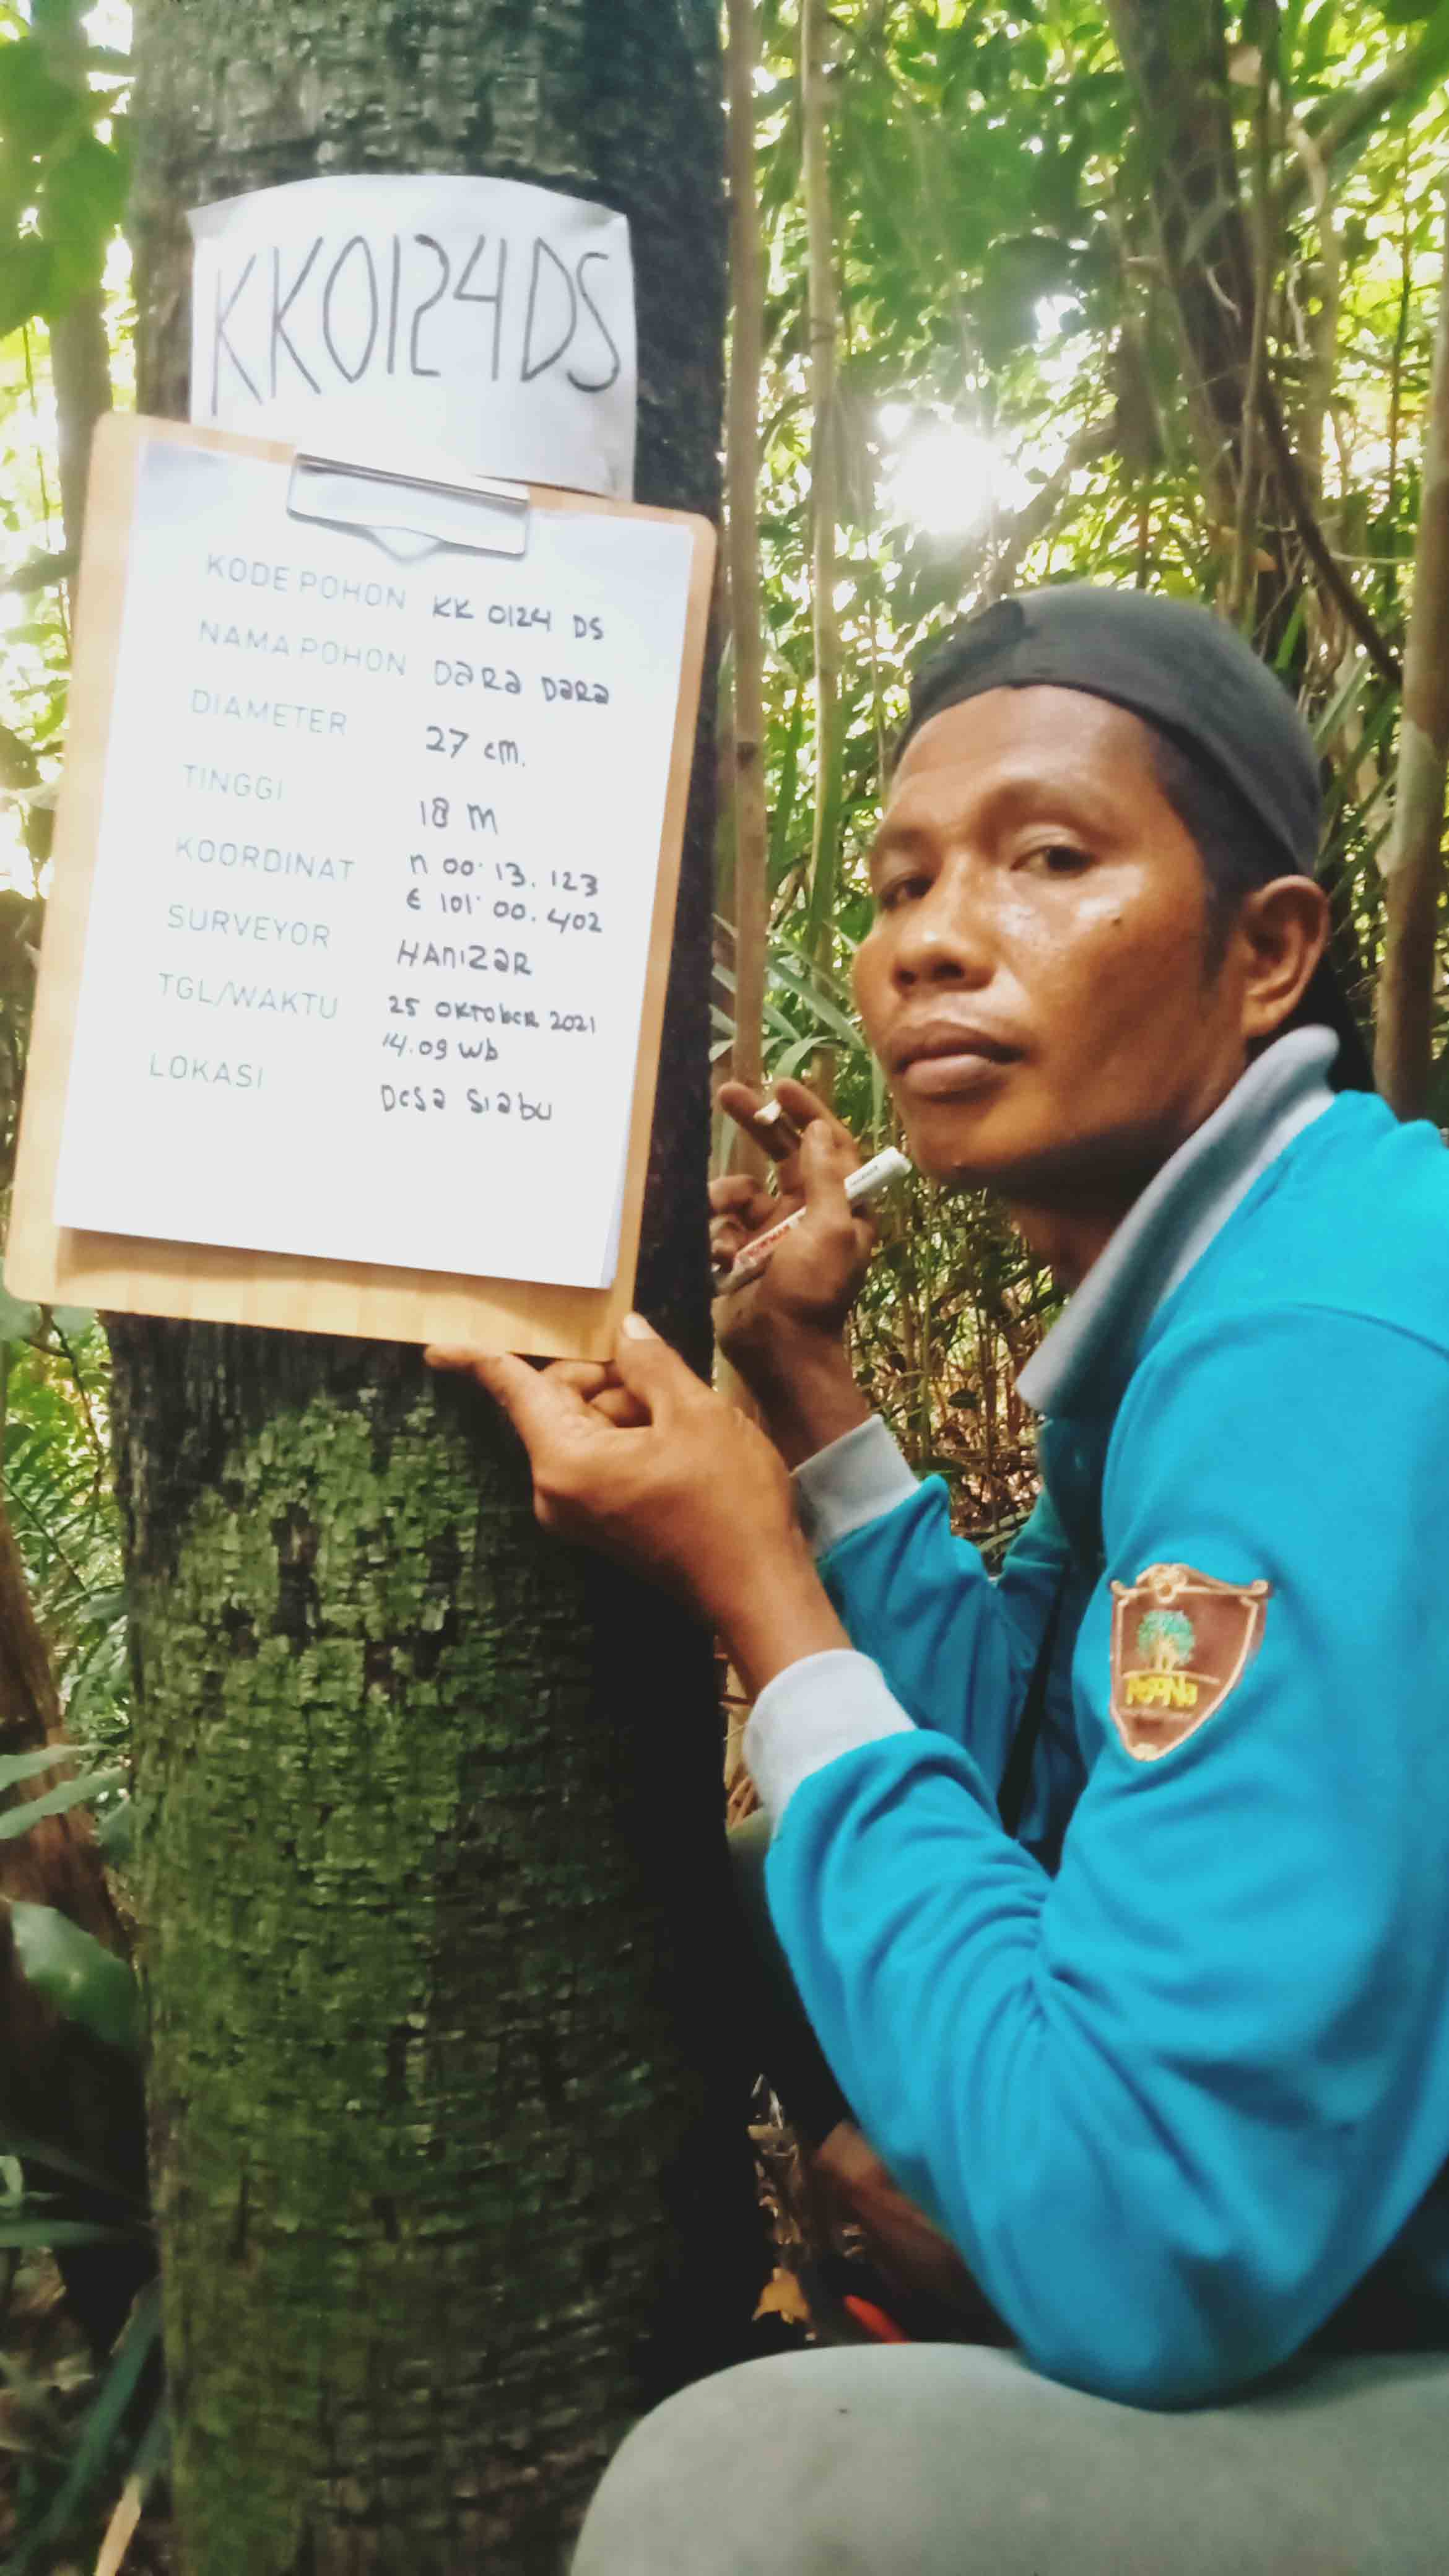 KK0124DS
KODE POHON KK 0124 DS
NAMA POHON DaRa DaRa
DIAMETER 27 cm.
TINGGI 18 m
KOORDINAT n 00° 13. 123
E 101° 00. 402
SURVEYOR HAnIZaR
TGL/WAKTU 25 OKTObeR 2021
14.09 Wb
LOKASI Desa Siabu